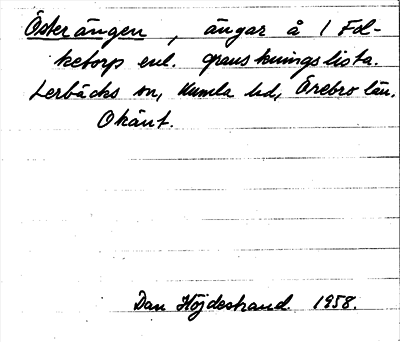 Österängen, ängar å 1 Fol-
ketorp enl. granskningslista.
Lerbäcks sn, Kumla hd, Örebro län.
Okänt.
Dan Höjdestrand 1958.